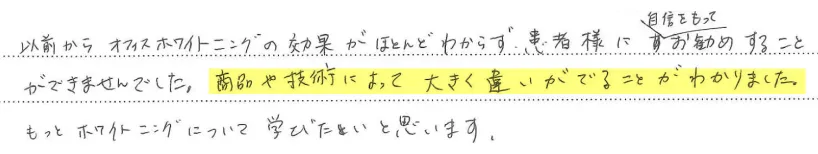 自信をもって
以前から オフィスホワイトニングの効果がほとんどわからず、患者様にお勧めすること
ができませんでした。商品や技術によって大きく違いがでることがわかりました。
もっとホワイトニングについて学びたいと思います。